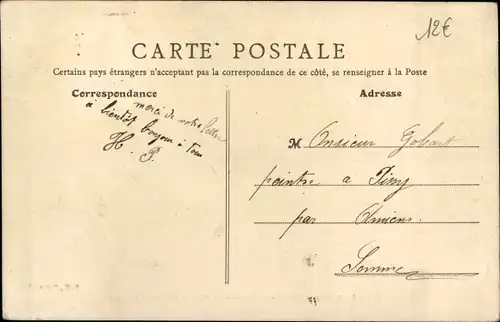 12€
CARTE POSTALE
Certains pays étrangers n'acceptant pas la correspondance de ce côté, se renseigner à la Poste
Correspondance
Adresse
merci de votre lettre
à bientôt bonjour à Tous
H. P.
Monsieur Gobart
peintre a
par Amiens
Somme